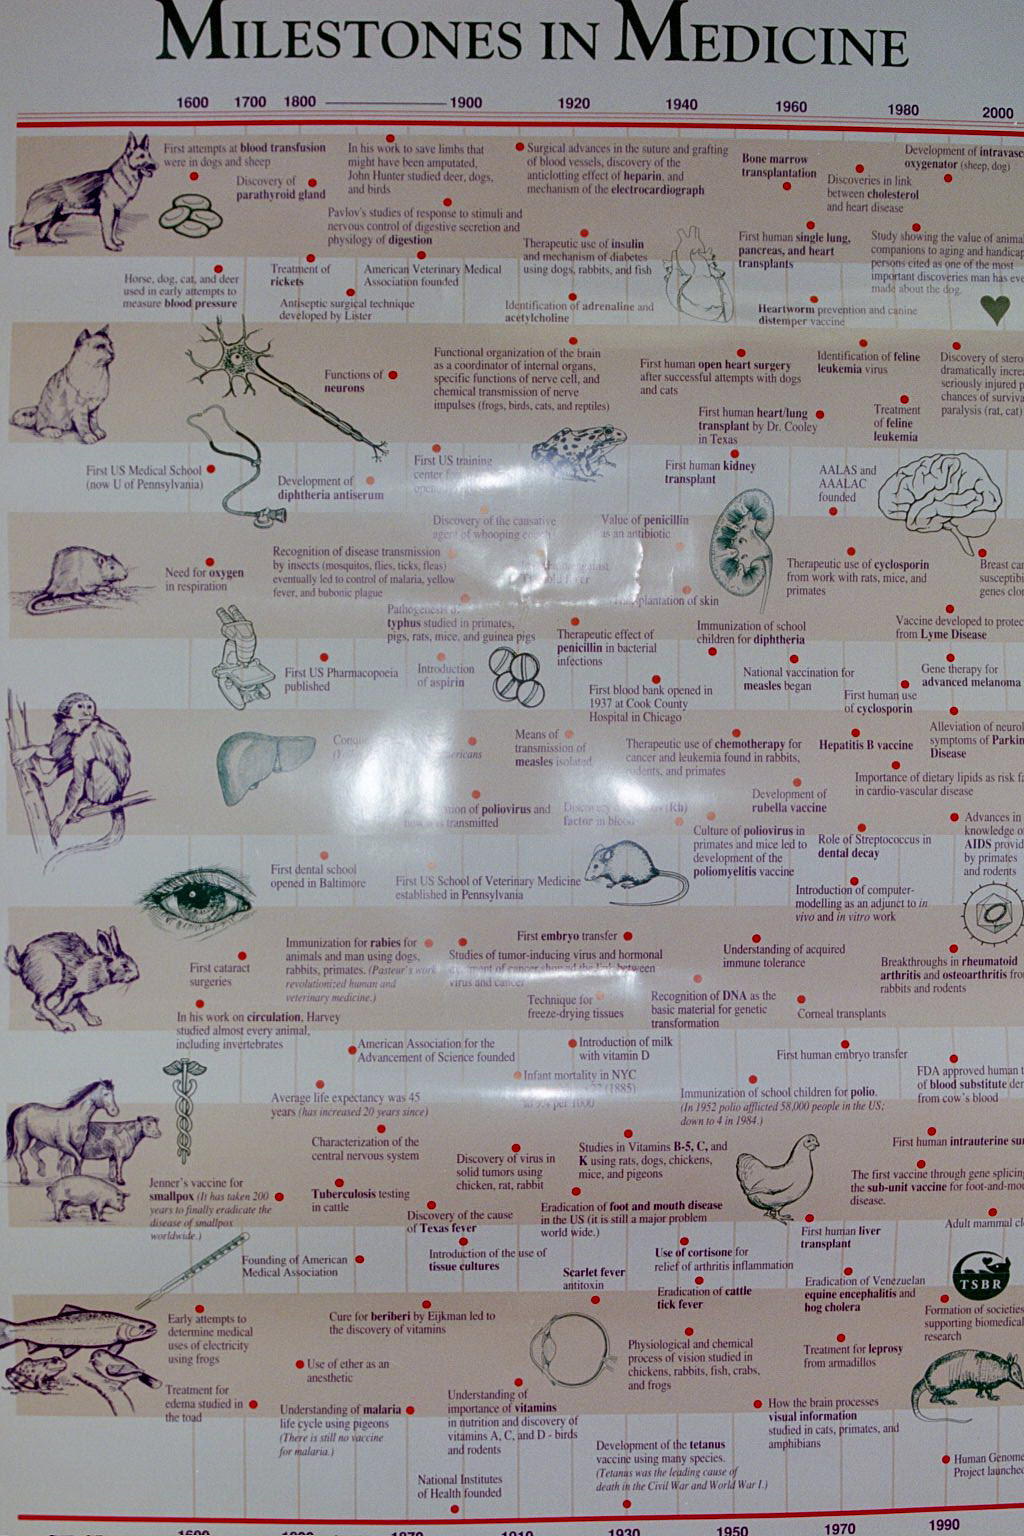 MILESTONES IN MEDICINE
1600 1700 1800 1900 1920 1940 1960 1980 2000
First attempts at blood transfusion
were in dogs and sheep
Discovery of
parathyroid gland
In his work to save limbs that
might have been amputated,
John Hunter studied deer, dogs,
and birds
Surgical advances in the suture and grafting
of blood vessels, discovery of the
anticlotting effect of heparin, and
mechanism of the electrocardiograph
Bone marrow
transplantation
Development of
oxygenator (sheep, dog)
Discoveries in link
between cholesterol
and heart disease
Pavlov's studies of response to stimuli and
nervous control of digestive secretion and
physilogy of digestion
Therapeutic use of insulin
and mechanism of diabetes
using dogs, rabbits, and fish
First human single lung,
pancreas, and heart
transplants
Study showing the value of
companions to aging and
persons cited as one of the most
important discoveries man has
made about the dog.
Horse, dog, cat, and deer
used in early attempts to
measure blood pressure
Treatment of
rickets
American Veterinary Medical
Association founded
Antiseptic surgical technique
developed by Lister
Identification of adrenaline and
acetylcholine
Heartworm prevention and canine
distemper vaccine
Functions of
neurons
Functional organization of the brain
as a coordinator of internal organs,
specific functions of nerve cell, and
chemical transmission of nerve
impulses (frogs, birds, cats, and reptiles)
First human open heart surgery
after successful attempts with dogs
and cats
Identification of feline
leukemia virus
Discovery of
dramatically
seriously injured
chances of
paralysis (rat, cat)
First human heart/lung
transplant by Dr. Cooley
in Texas
Treatment
of feline
leukemia
First US Medical School
(now U of Pennsylvania)
Development of
diphtheria antiserum
First US training
center
First human kidney
transplant
AALAS and
AAALAC
founded
Discovery of the causative
agent of whooping cough
Value of penicillin
as an antibiotic
Need for oxygen
in respiration
Recognition of disease transmission
by insects (mosquitos, flies, ticks, fleas)
eventually led to control of malaria, yellow
fever, and bubonic plague
Therapeutic use of cyclosporin
from work with rats, mice, and
primates
Breast
genes
of skin
Pathogenesis
typhus studied in primates,
pigs, rats, mice, and guinea pigs
Therapeutic effect of
penicillin in bacterial
infections
Immunization of school
children for diphtheria
Vaccine developed to
from Lyme Disease
First US Pharmacopoeia
published
Introduction
of aspirin
First blood bank opened in
1937 at Cook County
Hospital in Chicago
National vaccination for
measles began
Gene therapy for
advanced melanoma
First human use
of cyclosporin
Means of
transmission of
measles isolated
Therapeutic use of chemotherapy for
cancer and leukemia found in rabbits,
rodents, and primates
Hepatitis B vaccine
Alleviation of
symptoms of
Disease
Importance of dietary lipids as risk
in cardio-vascular disease
of poliovirus and
transmitted
(Rh)
factor in blood
Development of
rubella vaccine
Culture of poliovirus in
primates and mice led to
development of the
poliomyelitis vaccine
Role of Streptococcus in
dental decay
Advances in
knowledge
AIDS
by primates
and rodents
First dental school
opened in Baltimore
First US School of Veterinary Medicine
established in Pennsylvania
Introduction of computer-
modelling as an adjunct to in
vivo and in vitro work
First cataract
surgeries
Immunization for rabies for
animals and man using dogs,
rabbits, primates. (Pasteur's work
revolutionized human and
veterinary medicine.)
First embryo transfer
Studies of tumor-inducing virus and hormonal
of cancer showed the link between
virus and cancer
Understanding of acquired
immune tolerance
Breakthroughs in rheumatoid
arthritis and osteoarthritis
rabbits and rodents
Technique for
freeze-drying tissues
Recognition of DNA as the
basic material for genetic
transformation
Corneal transplants
In his work on circulation, Harvey
studied almost every animal,
including invertebrates
American Association for the
Advancement of Science founded
Introduction of milk
with vitamin D
First human embryo transfer
Infant mortality in NYC
(1885)
per 1000
FDA approved human
of blood substitute
from cow's blood
Average life expectancy was 45
years (has increased 20 years since)
Immunization of school children for polio.
(In 1952 polio afflicted 58,000 people in the US;
down to 4 in 1984.)
Characterization of the
central nervous system
Discovery of virus in
solid tumors using
chicken, rat, rabbit
Studies in Vitamins B-5, C, and
K using rats, dogs, chickens,
mice, and pigeons
First human intrauterine
Jenner's vaccine for
smallpox (It has taken 200
years to finally eradicate the
disease of smallpox
worldwide.)
Tuberculosis testing
in cattle
Discovery of the cause
of Texas fever
Eradication of foot and mouth disease
in the US (it is still a major problem
world wide.)
The first vaccine through gene
the sub-unit vaccine for
disease.
First human liver
transplant
Adult mammal
Founding of American
Medical Association
Introduction of the use of
tissue cultures
Use of cortisone for
relief of arthritis inflammation
Scarlet fever
antitoxin
Eradication of cattle
tick fever
Eradication of Venezuelan
equine encephalitis and
hog cholera
TSBR
Formation of societies
supporting biomedical
research
Early attempts to
determine medical
uses of electricity
using frogs
Cure for beriberi by Eijkman led to
the discovery of vitamins
Physiological and chemical
process of vision studied in
chickens, rabbits, fish, crabs,
and frogs
Treatment for leprosy
from armadillos
Use of ether as an
anesthetic
Treatment for
edema studied in
the toad
Understanding of malaria
life cycle using pigeons
(There is still no vaccine
for malaria.)
Understanding of
importance of vitamins
in nutrition and discovery of
vitamins A, C, and D - birds
and rodents
How the brain processes
visual information
studied in cats, primates, and
amphibians
Development of the tetanus
vaccine using many species.
(Tetanus was the leading cause of
death in the Civil War and World War I.)
Human
Project
National Institutes
of Health founded
1910 1930 1950 1970 1990